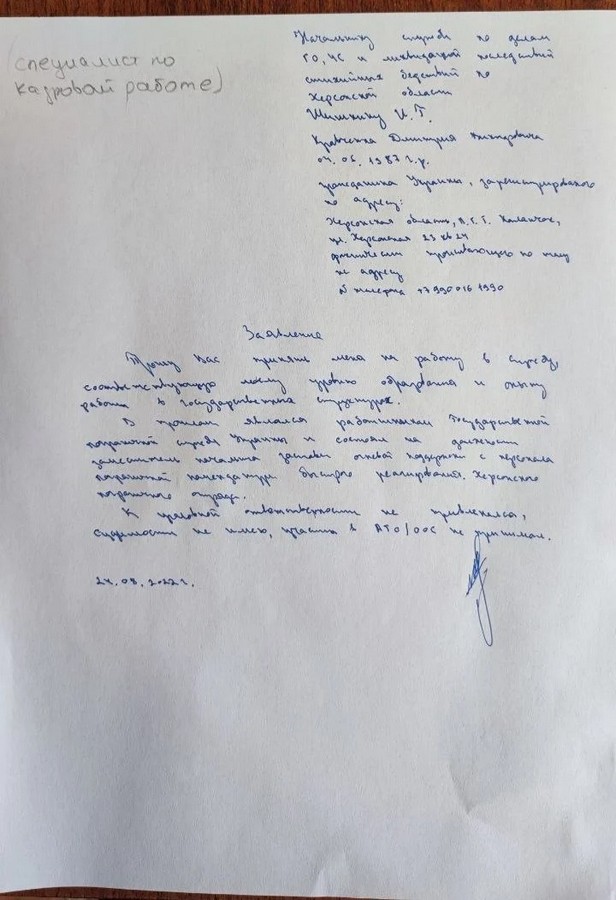 (специалист по
кадровой работе)
Начальнику службы по делам
ГО, ЧС и ликвидации последствий
стихийных бедствий по
Херсонской области
Шишкину И. Г.
Кравченка Дмитрия
04. 06. 1987 г.р.
гражданина Украины, зарегистрированого
по адресу:
Херсонская область, п.г.т. Каланчак,
ул. Херсонская 23 кв 24
фактически проживающего по тому
же адресу
N телефона +7990 016 1990
Заявление
Прошу Вас принять меня на работу в службу,
соответствующую моему уровню образования и опыту
работы в государственных структурах.
В прошлом являлся работником Государственной
пограничной службы Украины и состоял на должности
заместителя начальника заставы огневой поддержки с персонала
пограничной комендатуры быстрого реагирования Херсонского
пограничного отряда.
К уголовной ответственности не привлекался,
судимости не имею, участия в АТО/ООС не принимал.
24. 08. 2022 г.